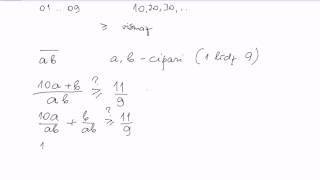 01 .. 09 10,20,30,..
≥ vismaz
\overline{ab} a, b - cipari (1 līdz 9)
\frac{10a+b}{ab} \overset{?}{≥} \frac{11}{9}
\frac{10a}{ab} + \frac{b}{ab} \overset{?}{≥} \frac{11}{9}
1